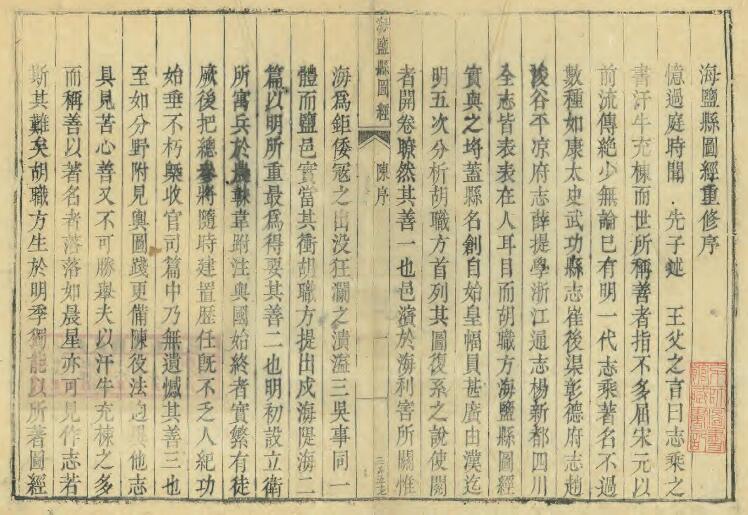 海鹽縣圖經重修序
憶過庭時聞 先子述 王父之言曰志乘之
書汗牛充棟而世所稱善者指不多屈宋元以
前流傳絶少無論已有明一代志乘著名不過
數種如康太史武功縣志崔後渠彰德府志趙
浚谷平凉府志薛提學浙江通志楊新都四川
全志皆表表在人耳目而胡職方海鹽縣圖經
實與之埒蓋縣名創自始皇幅員甚廣由漢迄
明五次分析胡職方首列其圖復系之說使閱
者開卷瞭然其善一也邑濱於海利害所關惟
海鹽縣圖經
陳序
一
海爲鉅倭寇之出没狂瀾之潰溢三吳事同一
體而鹽邑實當其衝胡職方提出戍海隄海二
篇以明所重最爲得要其善二也明初設立衛
所寓兵於農軼韋跗注與國始終者實繁有徒
厥後把總叅將隨時建置歷任旣不乏人紀功
始垂不朽槩收官司篇中乃無遺憾其善三也
至如分野附見輿圖踐更備陳役法迥異他志
具見苦心善又不可勝舉夫以汗牛充棟之多
而稱善以著名者落落如晨星亦可見作志若
斯其難矣胡職方生於明季獨能以所著圖經